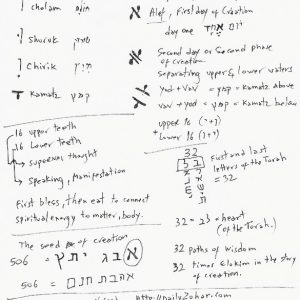 cholam חולם
Shuruk שורק
Chirik חיריק
Kamatz קמץ
16 upper teeth
16 Lower teeth
supernal thought
speaking, manifestation
First bless, then eat to connect
spiritual energy to matter, body.
The seed of creation
506 = אבג יתץ
506 = אהבת חנם
א Alef, First day of Creation
day one יום אחד
Second day or Second phase
of creation
Separating upper & lower waters
yod + vav = קמץ = Kamatz above
vav + yod = קמץ = Kamatz below
upper 16 (י+ו)
+ Lower 16 (ו+י)
32
First and last
letters of the Torah
= 32
ל ב
32 - לב = heart
(of the Torah).
32 paths of wisdom
32 times Elokim in the story
of creation.
http://dailyzohar.com